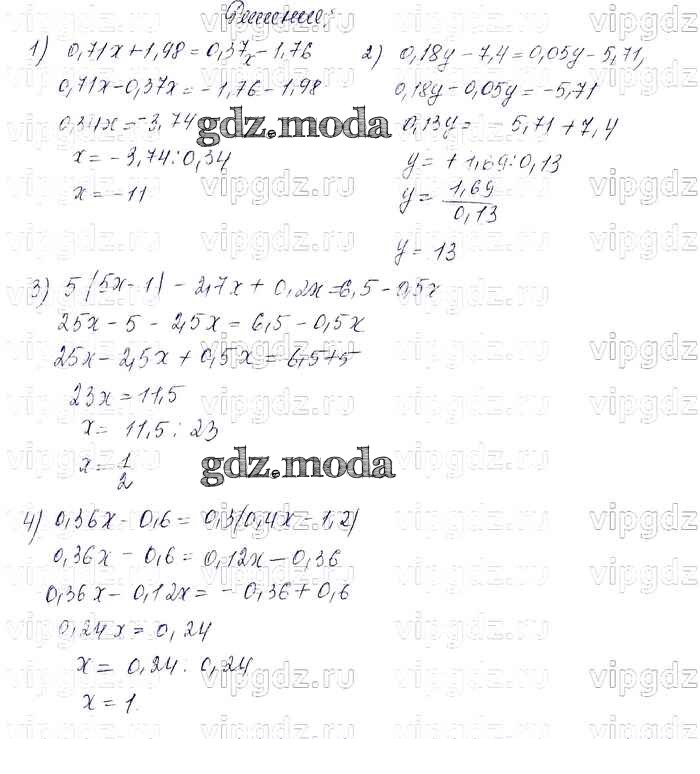 Решение:
1) 0,71x+1,98=0,37x-1,76
0,71x-0,37x=-1,76-1,98
0,34x=-3,74
x=-3,74:0,34
x=-11
2) 0,18y-7,4=0,05y-5,71,
0,18y-0,05y=-5,71
0,13y= -5,71+7,4
y=+1,69:0,13
y= 1,69/0,13
y=13
gdz.moda
3) 5(5x-1)-2,7x+0,2x=6,5-0,5x
25x-5-2,5x=6,5-0,5x
25x-2,5x+0,5x=6,5+5
23x=11,5
x= 11,5:23
x=1/2
gdz.moda
4) 0,36x-0,6=0,3(0,4x-1,2)
0,36x-0,6=0,12x-0,36
0,36x-0,12x=-0,36+0,6
0,24x=0,24
x=0,24:0,24
x=1.
vipgdz.ru